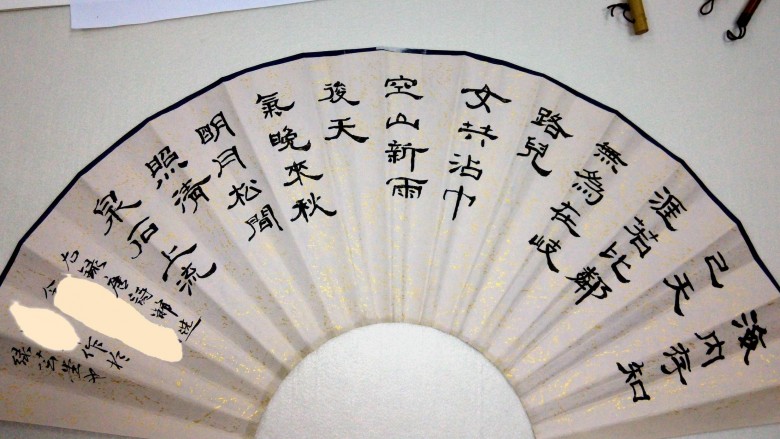 海內存知
己天
涯若比鄰
無為在岐
路兒
女共沾巾
空山新雨
後天
氣晚來秋
明月松間
照清
泉石上流
右錄唐詩
作於